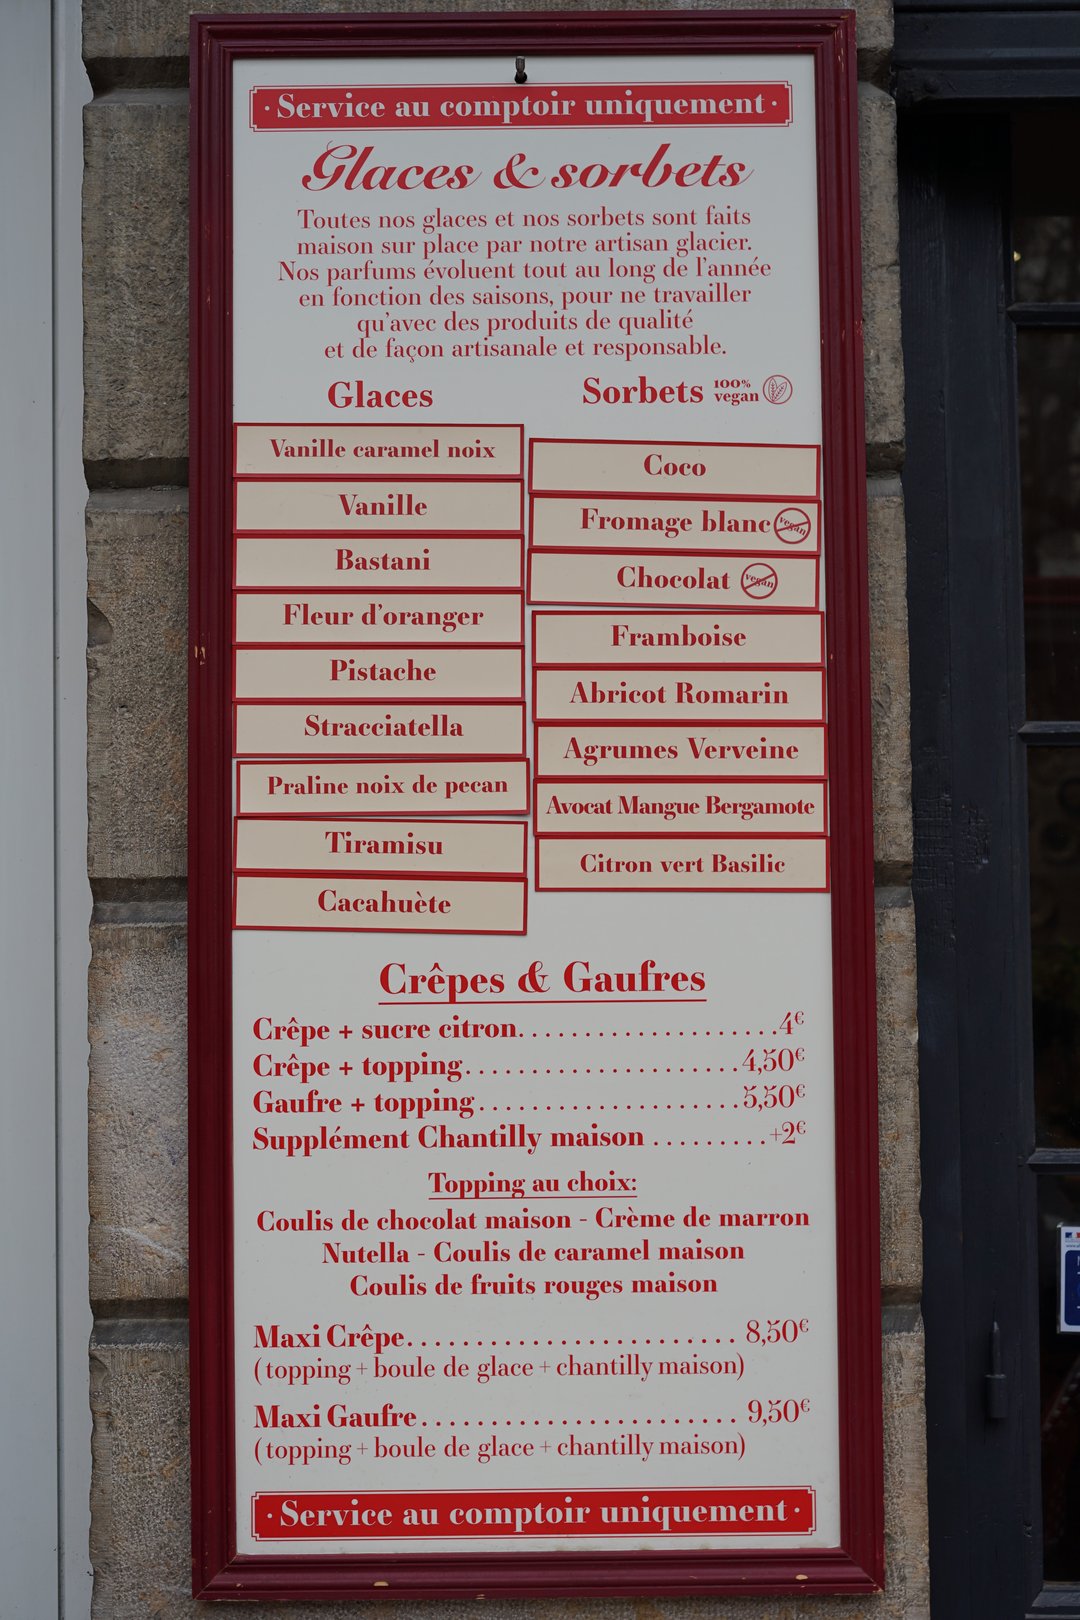 · Service au comptoir uniquement ·
Glaces & sorbets
Toutes nos glaces et nos sorbets sont faits
maison sur place par notre artisan glacier.
Nos parfums évoluent tout au long de l'année
en fonction des saisons, pour ne travailler
qu'avec des produits de qualité
et de façon artisanale et responsable.
Glaces
Vanille caramel noix
Vanille
Bastani
Fleur d'oranger
Pistache
Stracciatella
Praline noix de pecan
Tiramisu
Cacahuète
Sorbets 100% vegan
Coco
Fromage blanc vegan
Chocolat vegan
Framboise
Abricot Romarin
Agrumes Verveine
Avocat Mangue Bergamote
Citron vert Basilic
Crêpes & Gaufres
Crêpe + sucre citron....................4€
Crêpe + topping.....................4,50€
Gaufre + topping....................5,50€
Supplément Chantilly maison .........+2€
Topping au choix:
Coulis de chocolat maison - Crème de marron
Nutella - Coulis de caramel maison
Coulis de fruits rouges maison
Maxi Crêpe......................... 8,50€
(topping + boule de glace + chantilly maison)
Maxi Gaufre........................ 9,50€
(topping + boule de glace + chantilly maison)
· Service au comptoir uniquement ·